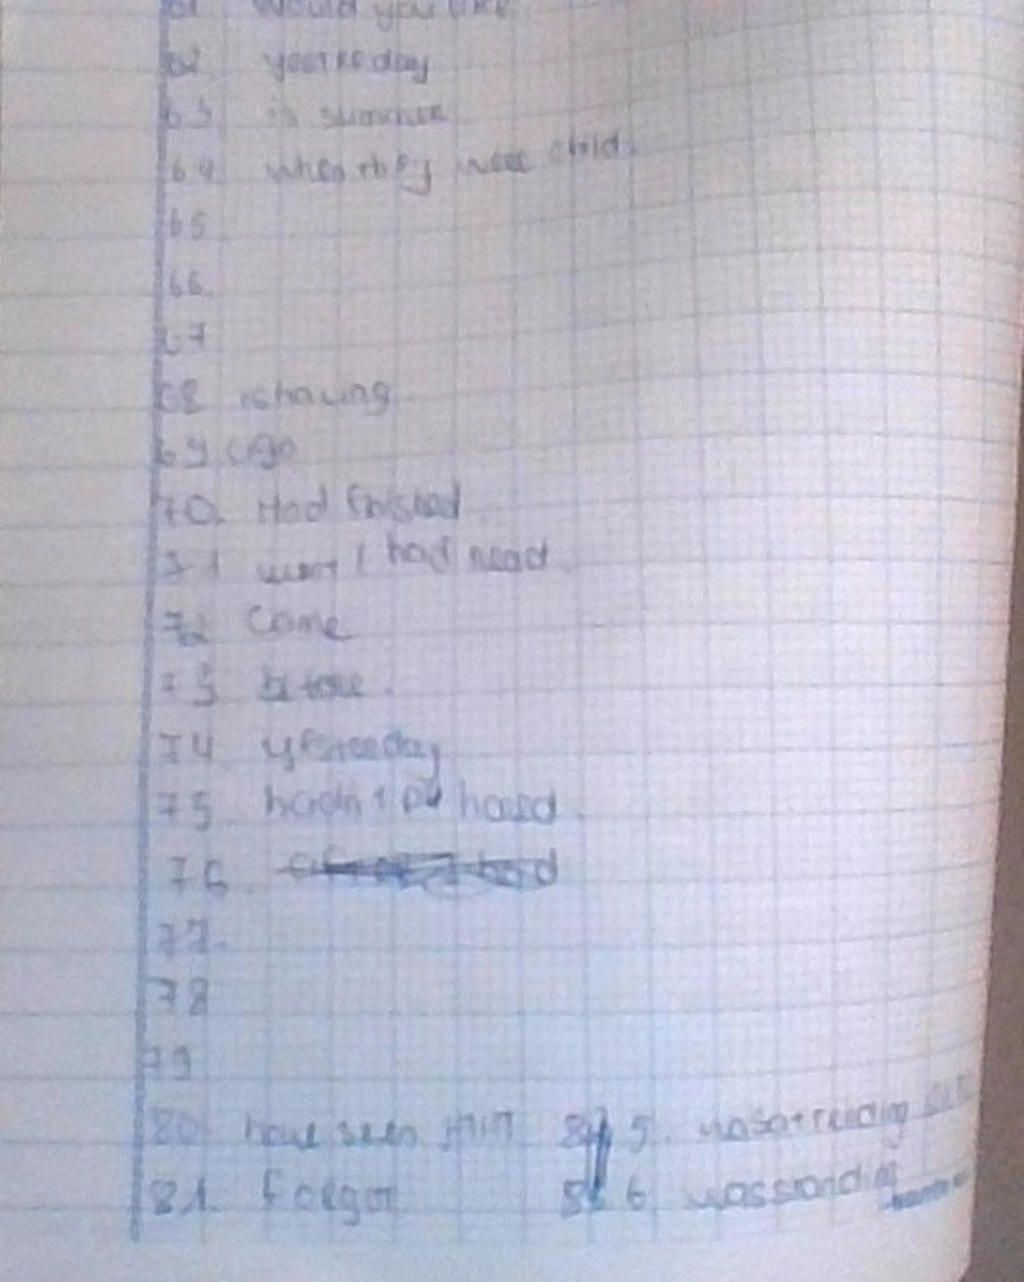 61 Would you like
62 yesterday
63 is summer
64 when they were child.
65
66
67
68 is having
69 ago
70. Had finished
71 went / had read
72 Came
73 before.
74 yesterday
75. hadn't heard
76.
77.
78
79
80. have seen him 5. attending
81. forgot 6 was standing